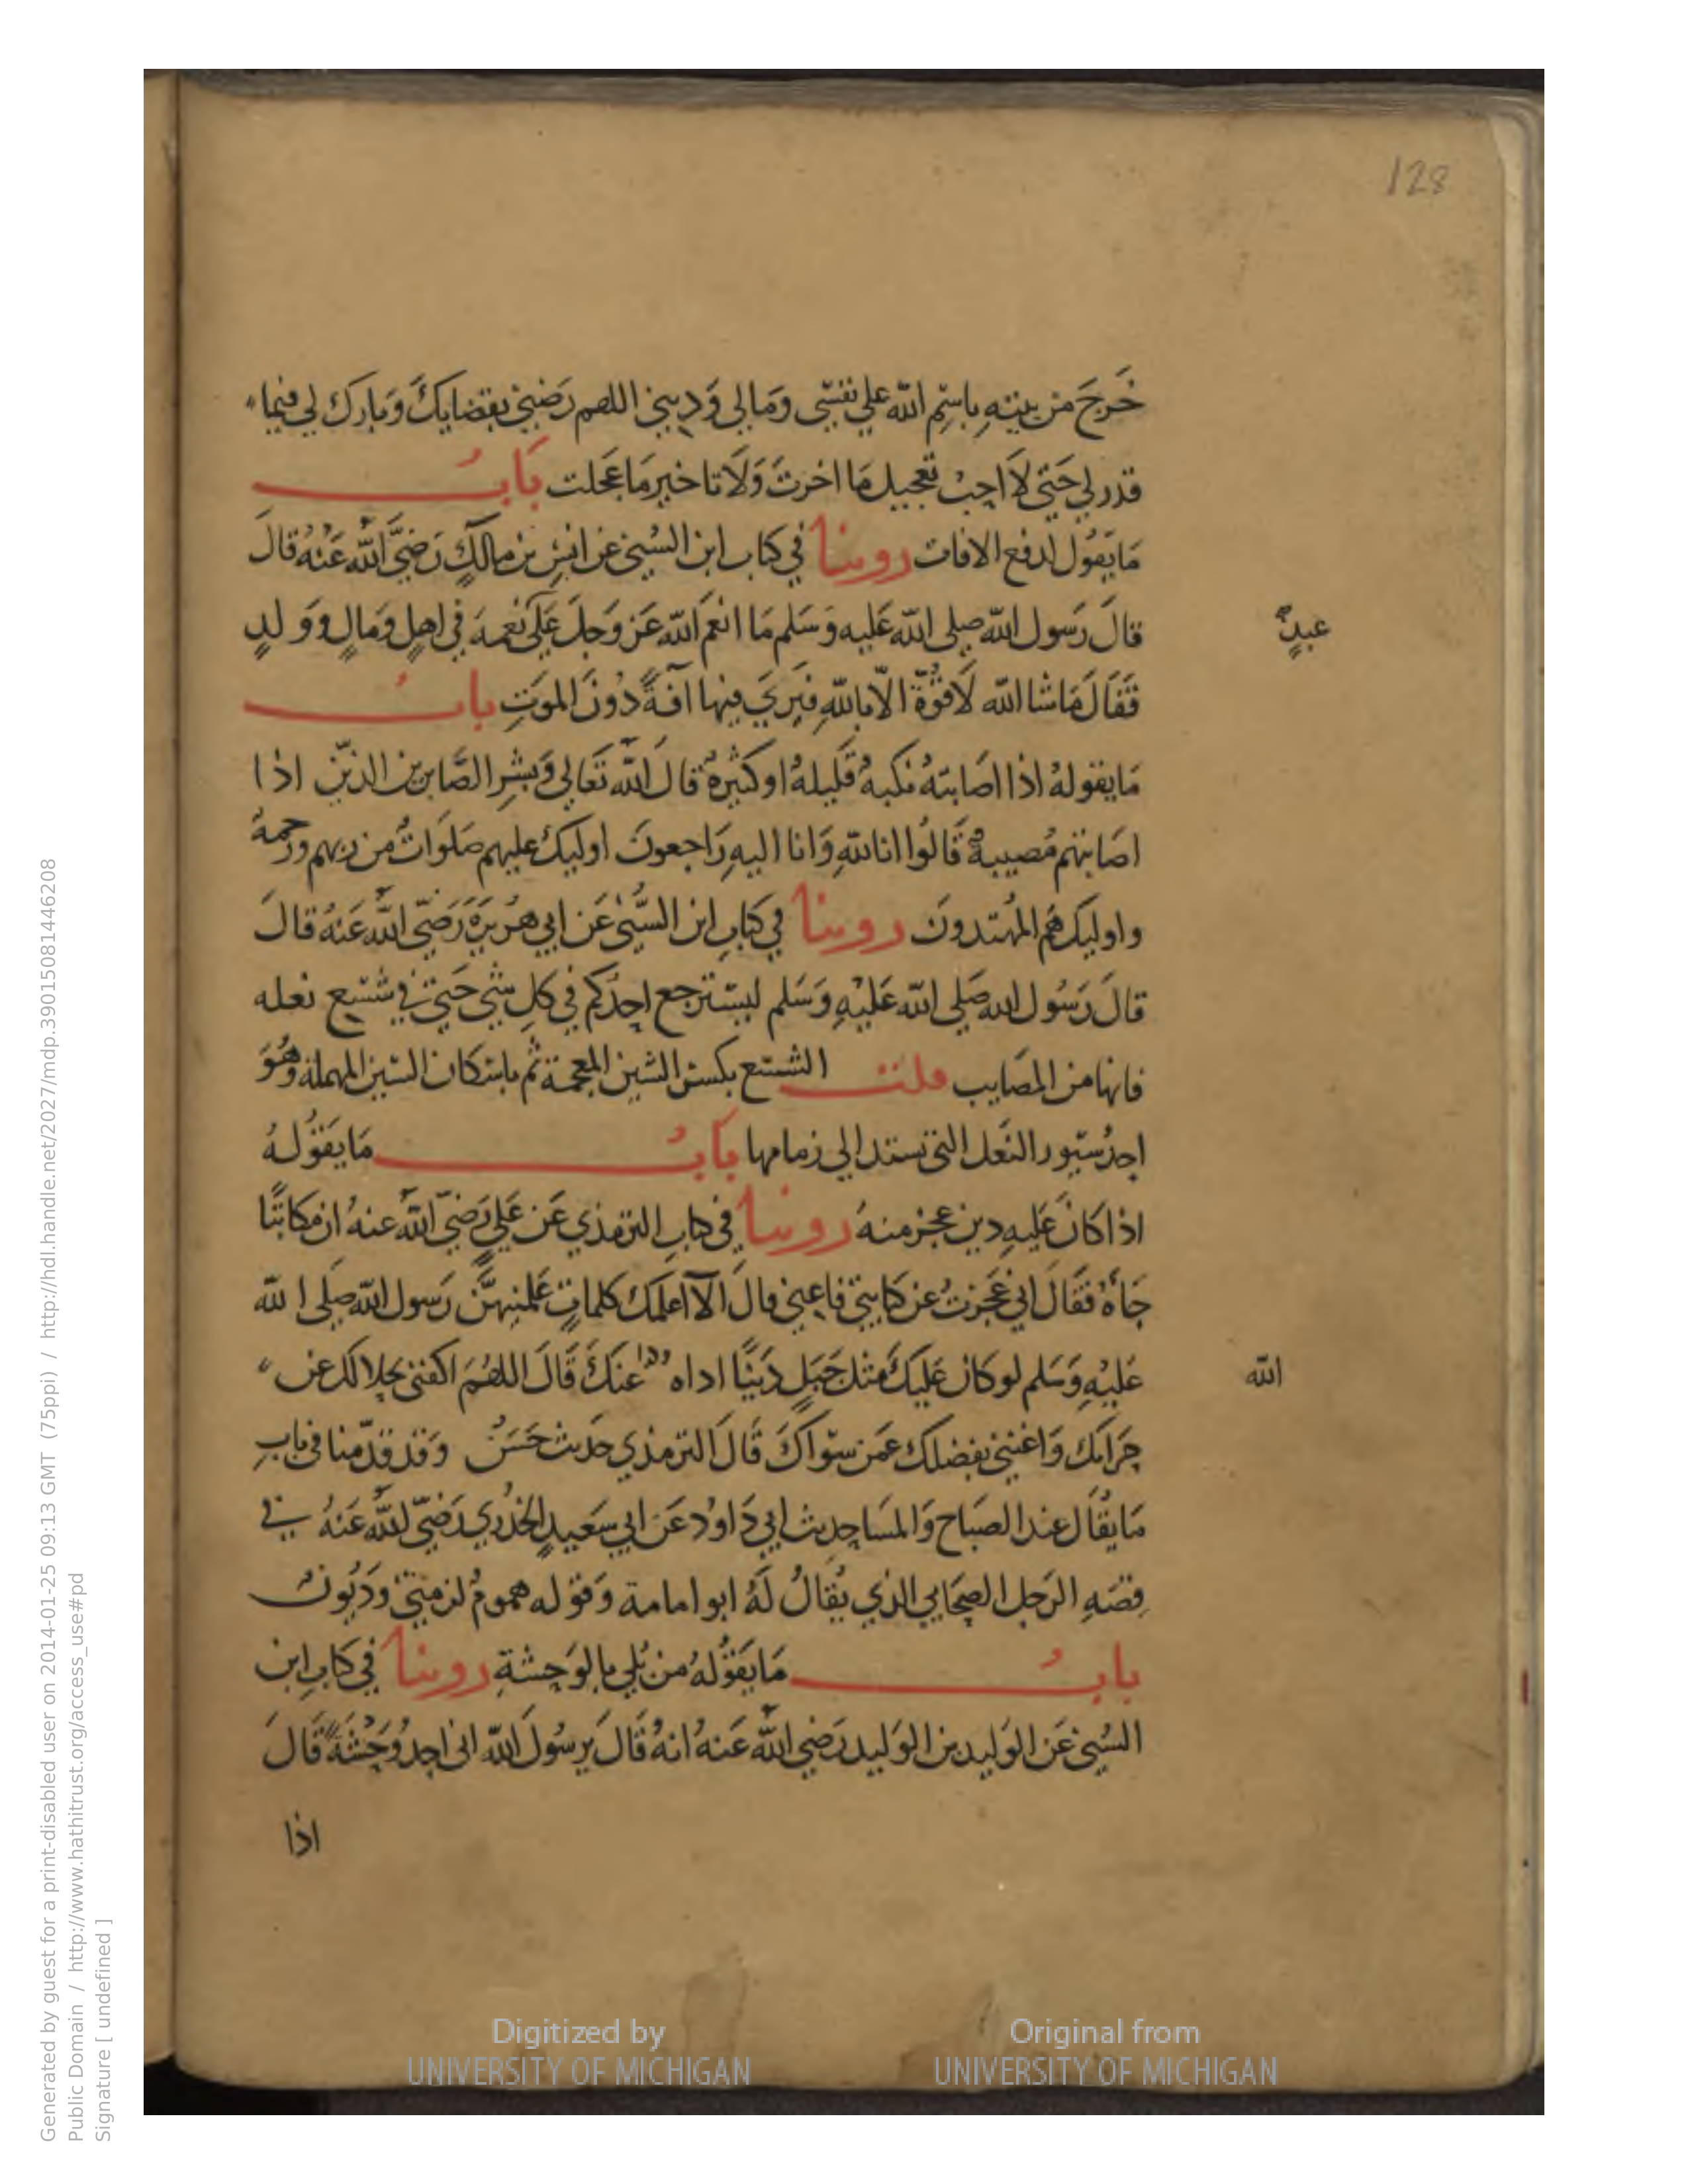 128
خَرجَ من بيتِهِ باسْمِ الله علي نفسي ومَالي وَديني اللهم رَضِّني بقضايكَ وَبارك لي فيما
قدر لي حَتي لاَ احِبْ تعجيل مَا اخرتَ وَلَا تاخير مَا عَجلت بَابُ
مَا يَقُول لدفع الافات روينا في كتاب ابن السُني عن انسِ بن مالكٍ رَضِيَّ الله عَنْهُ قالَ
قالَ رَسُول الله صلى الله عَليه وَسَلم مَا انعَمَ الله عَز وَجلَ عَلَي نعمة في اهلٍ وَمَالٍ وَوَلدٍ
عبدٍ
فَقَالَ مَا شا الله لَا قُوَّةَ الّا بالله فيَريَ فيها آفةً دُونَ الموَتِ بابُ
مَا يقولهُ اذا اصَابتهُ نكبهُ قَليلهُ او كثيرهُ قالَ الله تَعَالي وَبشرِ الصَّابرين الذين اذا
اصَابتهم مُصيبةٌ قَالُوا انا للهِ وَانا اليهِ رَاجعونَ اوليك عليهم صَلوَاتٌ من ربهم ورَحمةُ
واوليك هُم المُهتدونَ روينا في كتابِ ابن السُّنى عَن ابي هُريرَةَ رَضيّ الله عَنهُ قالَ
قالَ رَسُول الله صَلى الله عَليْهِ وَسَلم ليسترجع احدُكم في كل شيءٍ حَتي في شسع نعله
فانها من المصَايب قلت الشسع بكسر الشين المعجمة ثم باسكان السين المهملة وَهُوَ
احدُ سُيور النَعل التي تستد الي زمامها بَابُ مَا يَقُولهُ
اذا كانَ عَليهِ دين عجز منهُ روينا في كتابِ الترمذي عَن عَليٍ رَضيّ الله عنهُ ان مكاتبًا
جَاهُ فقَالَ اني عَجَزتُ عن كتابتي فاعِني قالَ الَا اعلمكَ كلماتٍ عَلمنيهنَّ رَسول الله صَلى الله
عَليْهِ وَسَلم لو كان عَليكَ مثل جَبَلٍ دَينًا اداه عنكَ قَالَ اللهُمَ اكفني بحلالك عن
الله
حَرامك وَاغنني بفضلك عَمَن سوَاكَ قَالَ الترمذي حَديث حَسَنٌ وَقد قدّمنا في بابِ
مَا يقَال عند الصبَاح وَالمسَا حِديث ابي دَاودَ عَن ابي سَعيدٍ الخدُري رَضيّ الله عَنهُ في
قصَهِ الرَجل الصحَابي الذي يُقالُ لَهُ ابو امامة وَقوله همومٌ لزمتني وَديُونٌ
بابُ مَا يَقُولهُ من بُلي بالوَحشةِ روينا في كتابِ ابن
السُني عَن الوَليد بن الوَليد رَضي الله عَنه انهُ قَالَ يرسُولَ الله اني اجدُ وَحْشَةً قَالَ
اذا
Digitized by
UNIVERSITY OF MICHIGAN
Original from
UNIVERSITY OF MICHIGAN
Generated by guest for a print-disabled user on 2014-01-25 09:13 GMT (75ppi) / http://hdl.handle.net/2027/mdp.39015081446208
Public Domain / http://www.hathitrust.org/access_use#pd
Signature [ undefined ]